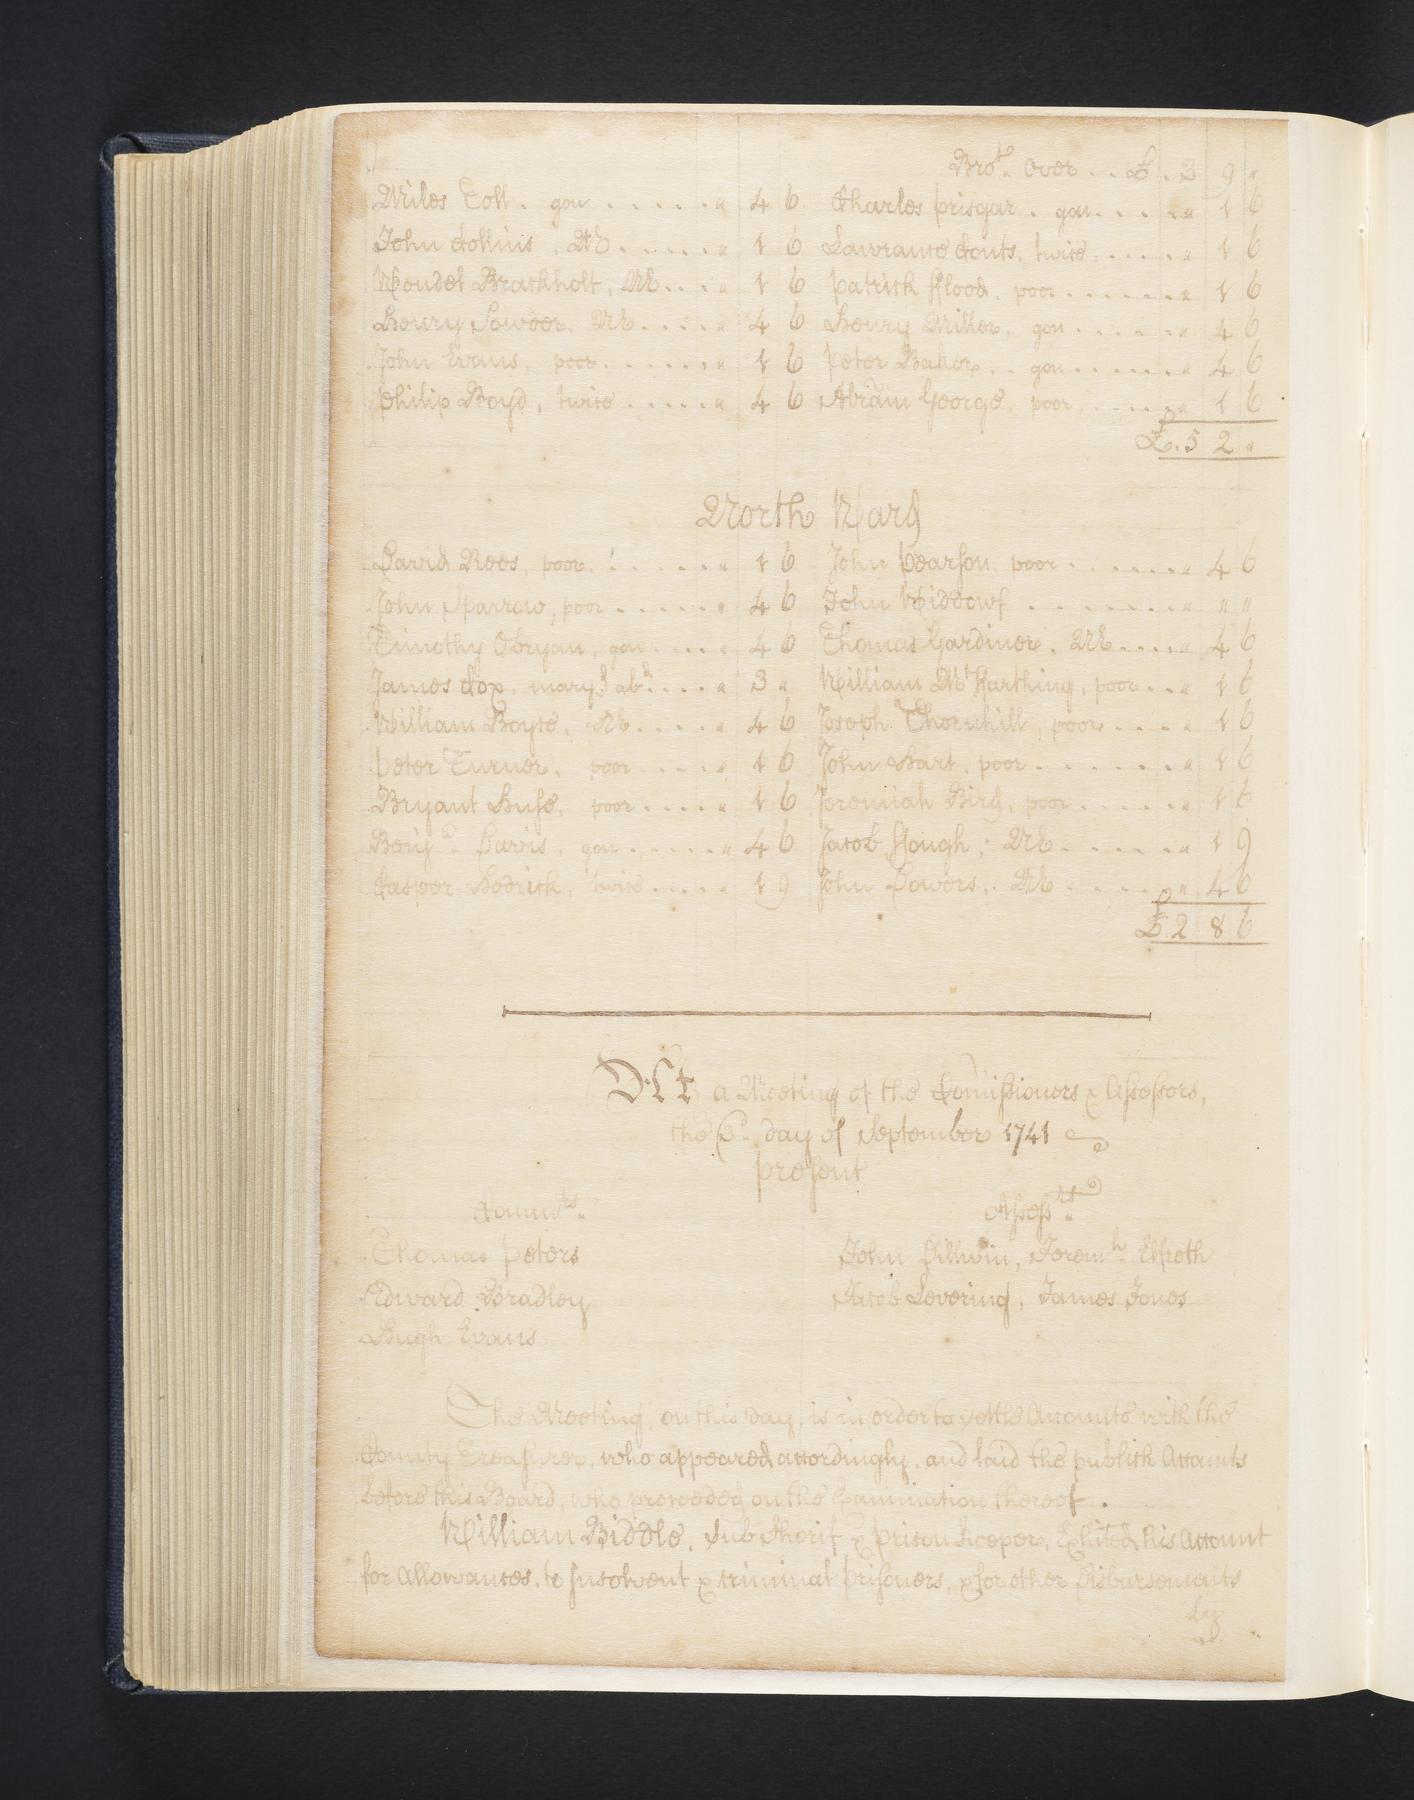 Bro.t over . . £ . 3 9 "
Miles Toll . gon . . . . . . " 4 6 Charles prisgar . gon . . . . " 1 6
John Collins . NE . . . . . . " 1 6 Lawrance Couts, twice . . . . . " 1 6
Wendel Brackholt, NE . . . " 1 6 patrick flood, poor . . . . . . " 1 6
Henry Sowder, NE . . . . . " 4 6 Henry Miller, gon . . . . . . " 4 6
John Evans, poor . . . . . . " 1 6 Peter Baker . . gon . . . . . . " 4 6
philip Boyd, twice . . . . . " 4 6 Abram George, poor . . . . . " 1 6
£ . 5 2 "
North Ward
David Rees, poor . . . . . . . " 1 6 John pearson, poor . . . . . . . " 4 6
John Sparrow, poor . . . . . " 4 6 John Widdows . . . . . . . . . " " "
Timothy Obryan, gon . . . . . " 4 6 Thomas Gardiner, NE . . . . " 4 6
James Cox, mary.d ab.t . . . . " 3 " William Mc.Harthing, poor . . . " 1 6
William Boyce, NE . . . . . " 4 6 Joseph Thornhill, poor . . . . " 1 6
peter Turner, poor . . . . . " 1 6 John Hart, poor . . . . . . . " 1 6
Bryant Huse, poor . . . . . " 1 6 Jeremiah Bird, poor . . . . . . " 1 6
Benj.n Davis, gon . . . . . . " 4 6 Jacob Hough, NE . . . . . . " 1 9
Casper Hedrick, twice . . . . . " 1 9 John Powers, NE . . . . . . " 4 6
£ 2 8 6
At a Meeting of the Comissioners & Assessors,
the 3.d day of September 1741
present
Comm.rs Assess.rs
Thomas peters John Dillwin, Jerem.h Elfreth
Edward Bradley Jacob Levering, James Jones
Hugh Evans
The Meeting, on this day, is in order to settle Accounts with the
County Treasurer, who appeared accordingly, and laid the publick Accounts
before this Board, who proceeded on the Examination thereof .
William Biddle, Sub Sherif & prison Keeper, Exhited his Account
for Allowances, to Insolvent & criminal prisoners, & for other Disbursements